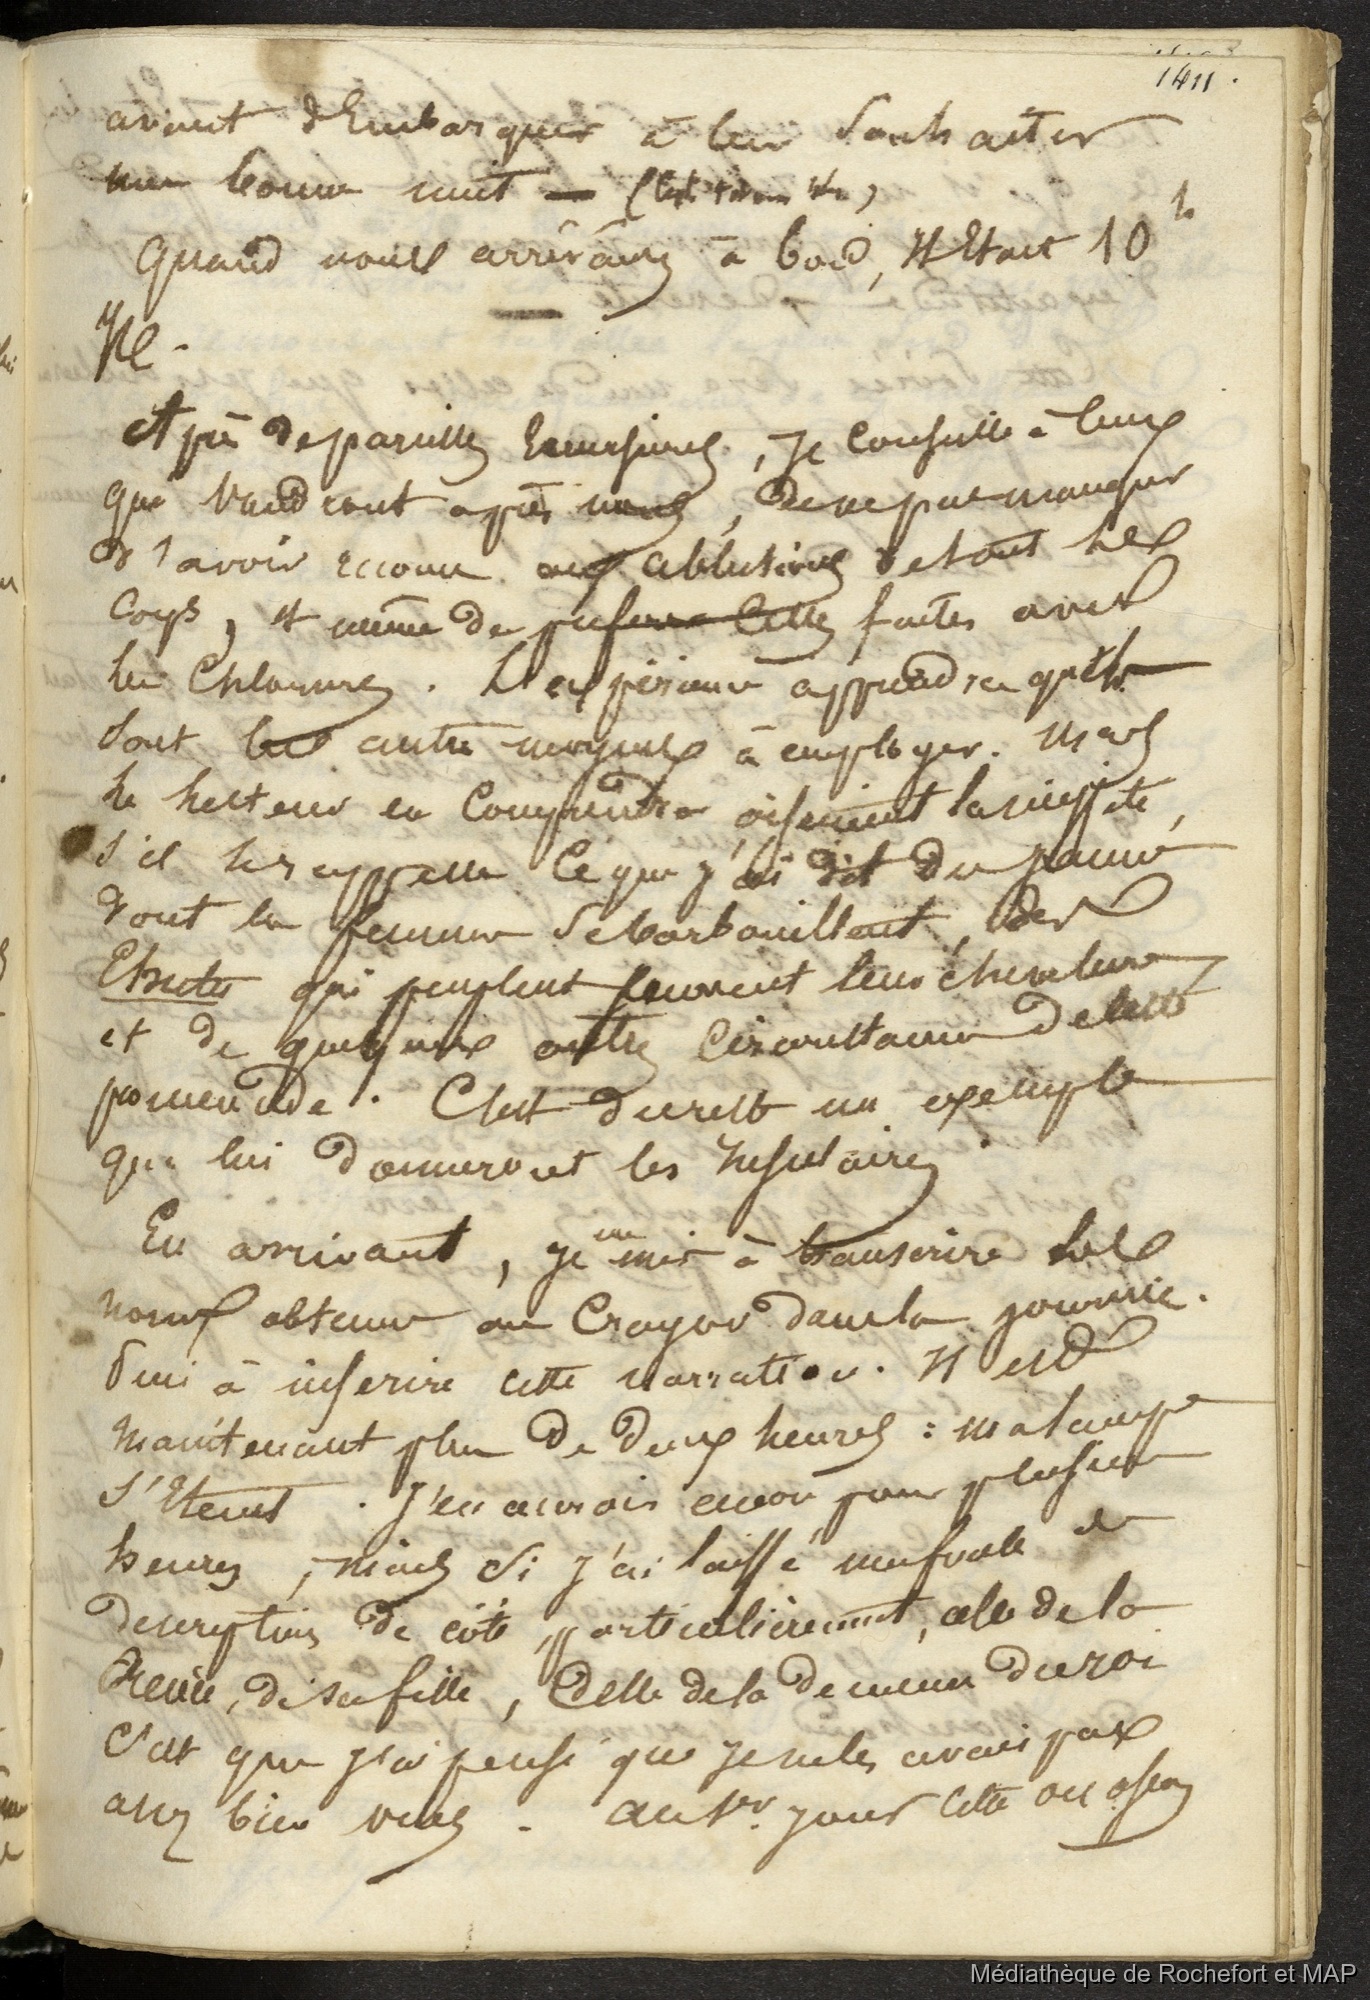 1411.
avant d'Embarquer à leur Souhaiter
une bonne nuit —
Quand nous arrivâmes à bord, Il Etait 10 h
Après de pareilles Excursions, je conseille à ceux
qui viendront après nous, de ne pas manquer
d'avoir recours aux ablutions de tout le
Corps, et même de préférer celles faites avec
les Chlorures. L'expérience apprendra quels
sont les autres moyens à employer. Mais
le Lecteur en Comprendra aisément la nécessité,
s'il se rappelle ce que j'ai dit du
dont les femmes se barbouillent, des
qui peuplent souvent leur chevelure
et de quelques autres Circonstances de cette
promenade. C'est du reste un exemple
que lui donneront les Insulaires.
En arrivant, je me mis à transcrire les
noms obtenus au Crayon dans la journée.
Puis à inscrire cette narration. Il est
maintenant plus de deux heures : ma lampe
s'Eteint. J'en aurois encore pour plusieurs
heures, mais si j'ai laissé une foule de
descriptions de côté, particulièrement, celle de la
Reine, de sa fille, Celle de la demeure du roi
C'est que j'ai pensé que je ne les avais pas
assez bien vues. Au 1er jour cette occasion
Médiathèque de Rochefort et MAP